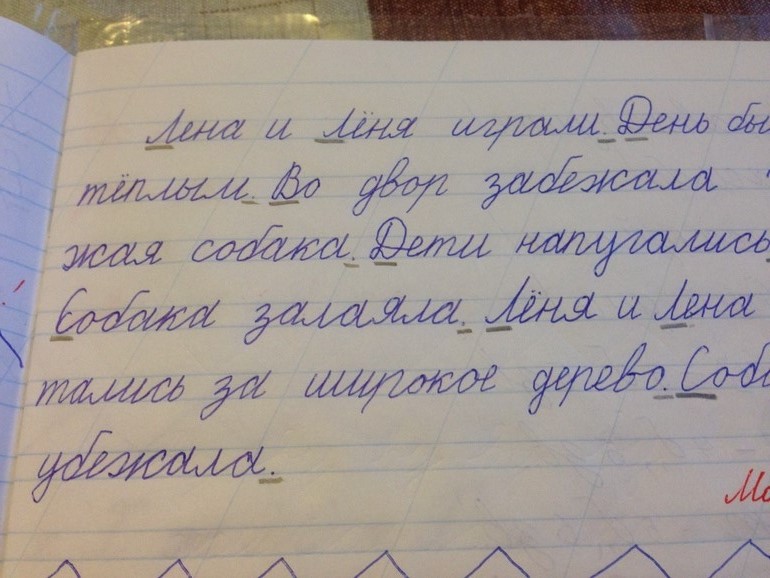 Лена и Лёня играли. День бы
тёплым. Во двор забежала
жая собака. Дети напугались.
Собака залаяла. Лёня и Лена
тались за широкое дерево. Соба
убежала.